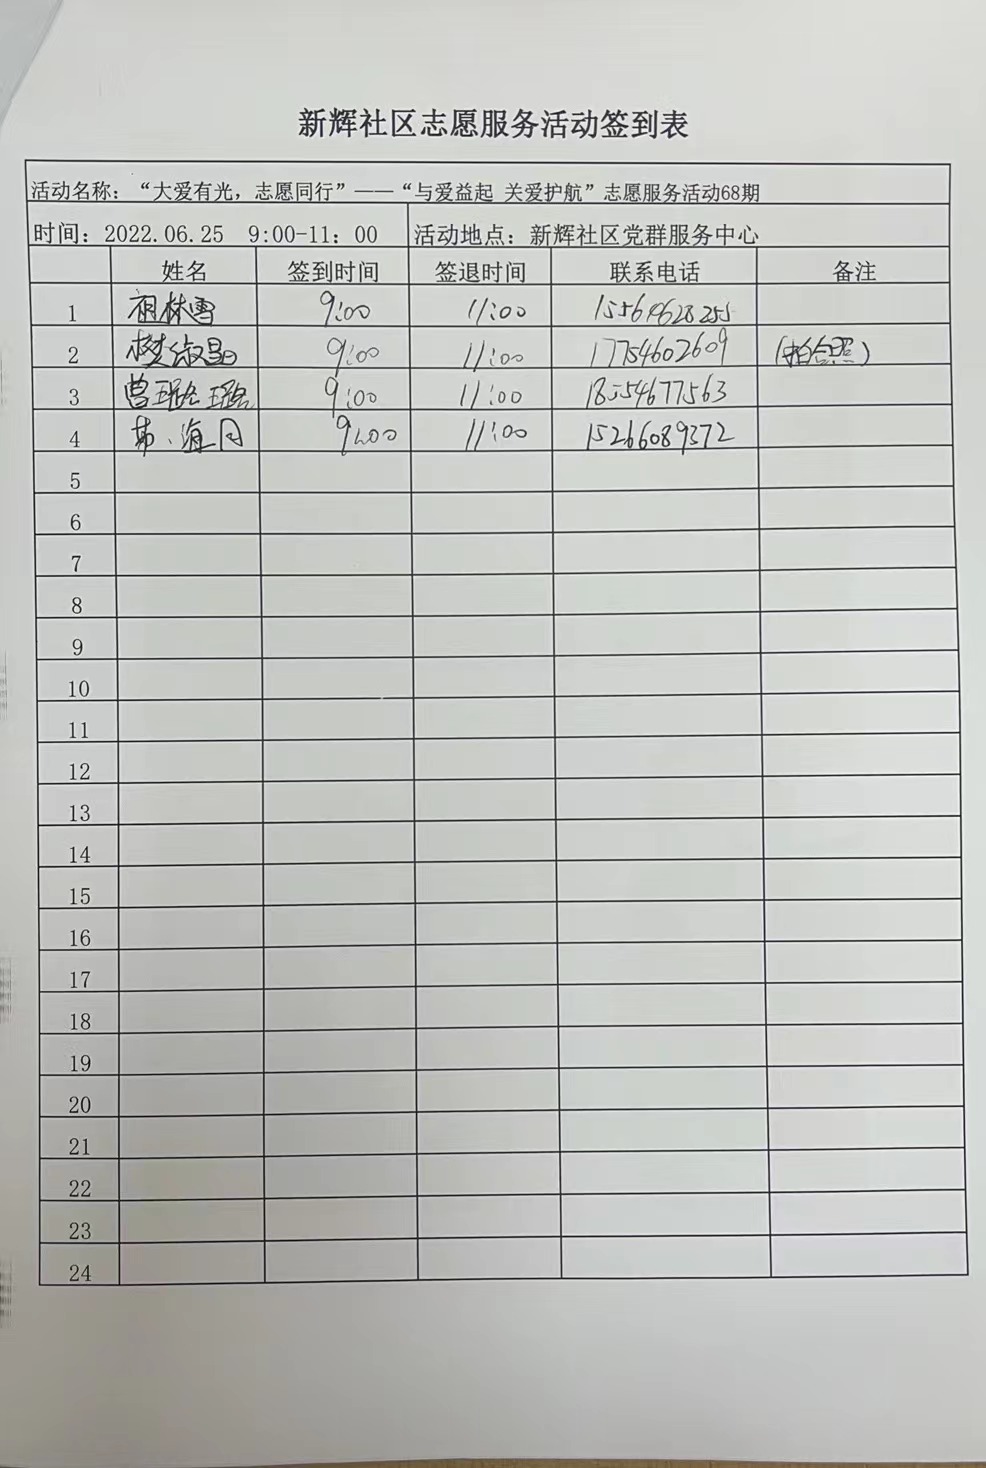 新辉社区志愿服务活动签到表
活动名称：“大爱有光，志愿同行”——“与爱益起 关爱护航”志愿服务活动68期
时间：2022.06.25 9:00-11：00 活动地点：新辉社区党群服务中心
姓名 签到时间 签退时间 联系电话 备注
1 林雪 9:00 11:00
2 樊淑昌 9:00 11:00 17754602609 (拍合照)
3 曹璐璐 9:00 11:00 18554677563
4 海月 9:00 11:00 15266089372
5
6
7
8
9
10
11
12
13
14
15
16
17
18
19
20
21
22
23
24